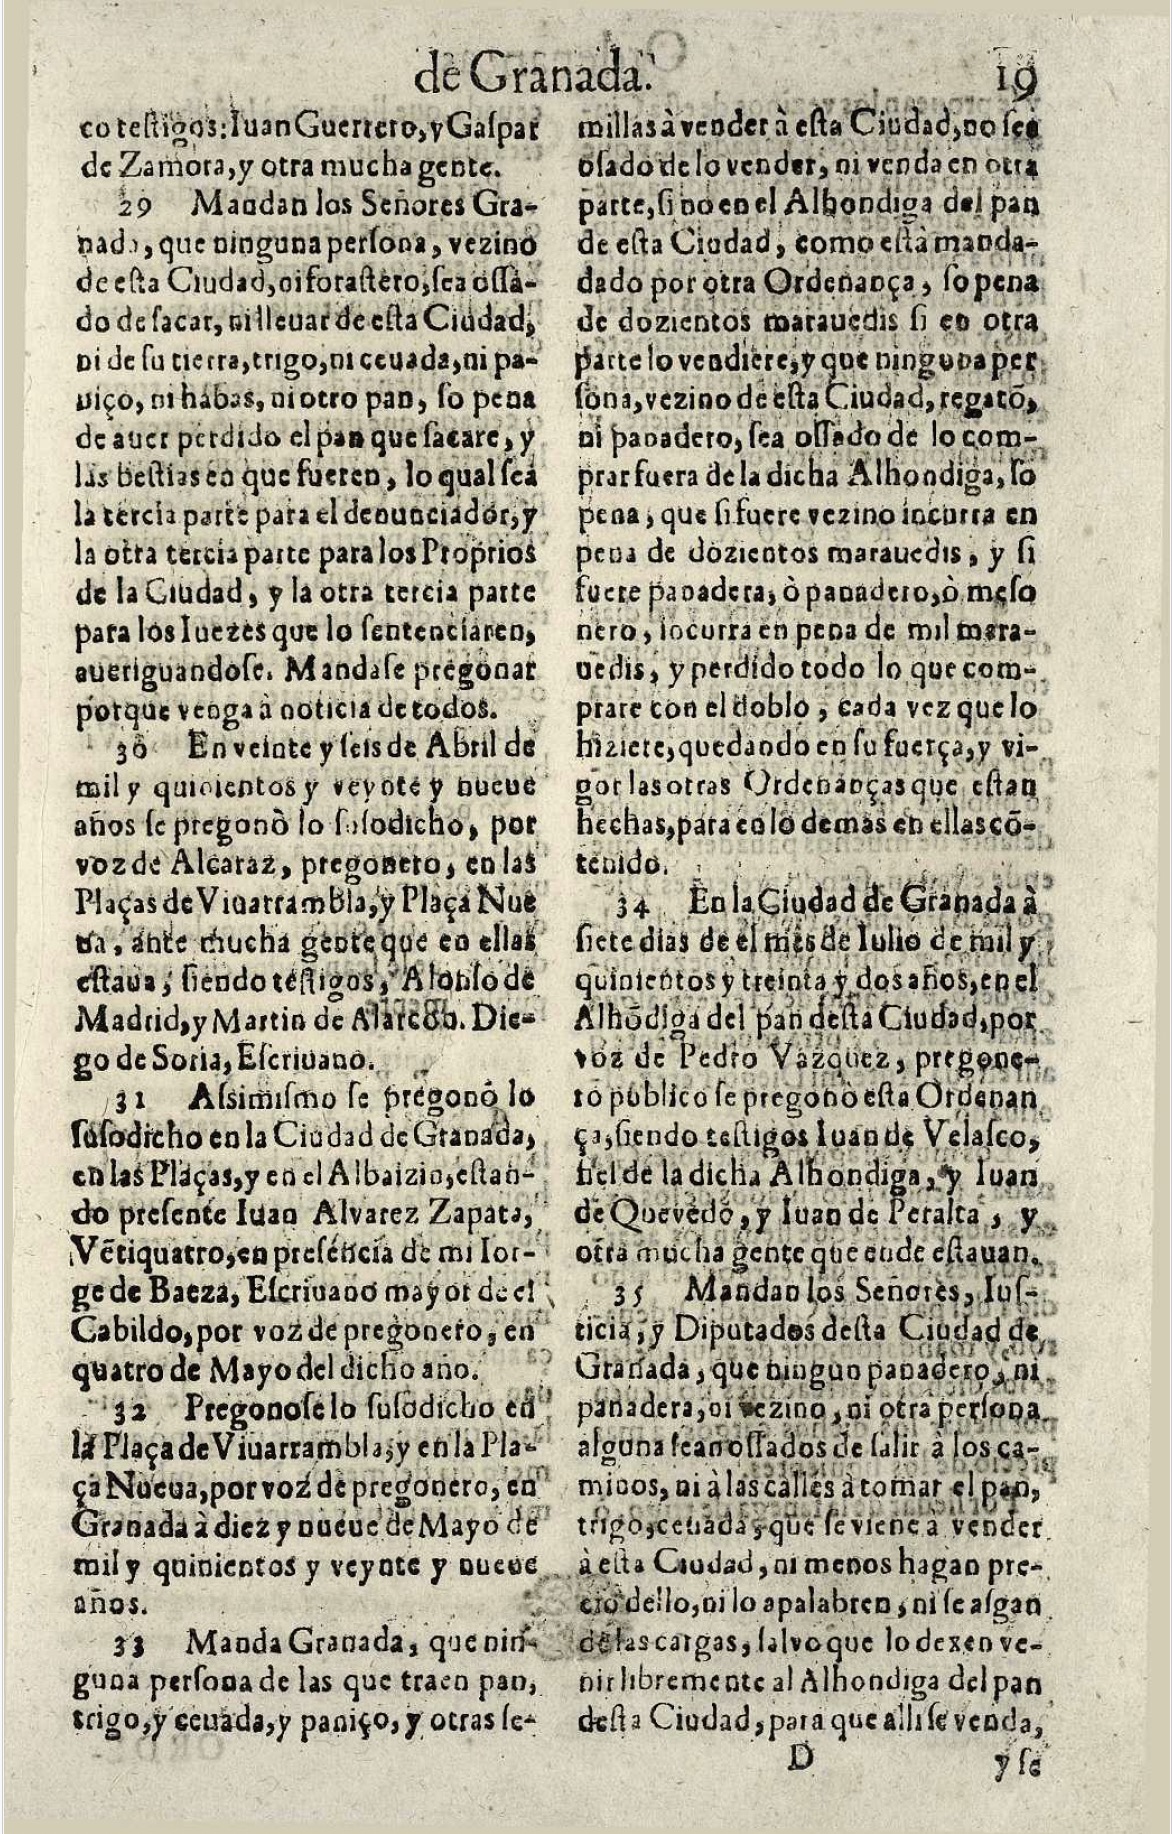 de Granada. 19
co testigos: Iuan Guerrero, y Gaspar
de Zamora, y otra mucha gente.
29 Mandan los Señores Gra-
nada, que ninguna persona, vezino
de esta Ciudad, ni forastero, sea ossa-
do de sacar, ni lleuar de esta Ciudad,
ni de su tierra, trigo, ni ceuada, ni pa-
niço, ni habas, ni otro pan, so pena
de auer perdido el pan que sacare, y
las bestias en que fueren, lo qual sea
la tercia parte para el denunciador, y
la otra tercia parte para los Proprios
de la Ciudad, y la otra tercia parte
para los Iuezes que lo sentenciaren,
aueriguandose. Mandase pregonar
porque venga à noticia de todos.
30 En veinte y seis de Abril de
mil y quinientos y veynte y nueue
años se pregonò lo susodicho, por
voz de Alcaraz, pregonero, en las
Plaças de Viuarrambla, y Plaça Nue
ua, ante mucha gente que en ellas
estaua, siendo testigos, Alonso de
Madrid, y Martin de Alarcon. Die-
go de Soria, Escriuano.
31 Assimismo se pregonò lo
susodicho en la Ciudad de Granada,
en las Plaças, y en el Albaizin, estan-
do presente Iuan Alvarez Zapata,
Vẽtiquatro, en presencia de mi Ior-
ge de Baeza, Escriuano mayor de el
Cabildo, por voz de pregonero, en
quatro de Mayo del dicho año.
32 Pregonose lo susodicho en
la Plaça de Viuarrambla, y en la Pla-
ça Nueua, por voz de pregonero, en
Granada à diez y nueue de Mayo de
mil y quinientos y veynte y nueue
años.
33 Manda Granada, que nin-
guna persona de las que traen pan,
trigo, y ceuada, y paniço, y otras se-
millas à vender à esta Ciudad, no sea
osado de lo vender, ni venda en otra
parte, si no en el Alhondiga del pan
de esta Ciudad, como està manda-
dado por otra Ordenança, so pena
de dozientos marauedis si en otra
parte lo vendiere, y que ninguna per
sona, vezino de esta Ciudad, regatõ,
ni panadero, sea ossado de lo com-
prar fuera de la dicha Alhondiga, so
pena, que si fuere vezino incurra en
pena de dozientos marauedis, y si
fuere panadera, ò panadero, ò meso
nero, incurra en pena de mil mara-
uedis, y perdido todo lo que com-
prare con el doblo, cada vez que lo
hiziere, quedando en su fuerça, y vi-
gor las otras Ordenanças que estan
hechas, para en lo demas en ellas cõ-
tenido.
34 En la Ciudad de Granada à
siete dias de el mes de Iulio de mil y
quinientos y treinta y dos años, en el
Alhõdiga del pan desta Ciudad, por
voz de Pedro Vazquez, pregone-
ro publico se pregonò esta Ordenan
ça, siendo testigos Iuan de Velasco,
fiel de la dicha Alhondiga, y Iuan
de Quevedo, y Iuan de Peralta, y
otra mucha gente que ende estauan.
35 Mandan los Señores, Ius-
ticia, y Diputados desta Ciudad de
Granada, que ningun panadero, ni
panadera, ni vezino, ni otra persona
alguna sean ossados de salir à los ca-
minos, ni à las calles à tomar el pan,
trigo, ceuada, que se viene à vender
à esta Ciudad, ni menos hagan pre-
cio dello, ni lo apalabren, ni se asgan
de las cargas, salvo que lo dexen ve-
nir libremente al Alhondiga del pan
desta Ciudad, para que alli se venda,
D y se